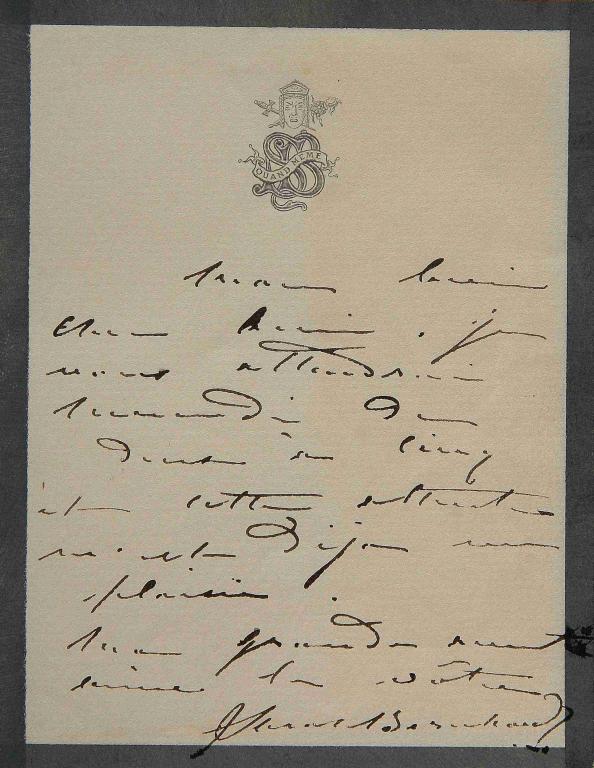 QUAND MÊME
SB
mon bien
cher Ami, je
vous attendrai
samedi de
deux à cinq
et cette attente
m'est déjà un
plaisir.
ma grande amitié
la vôtre
Sarah Bernhardt